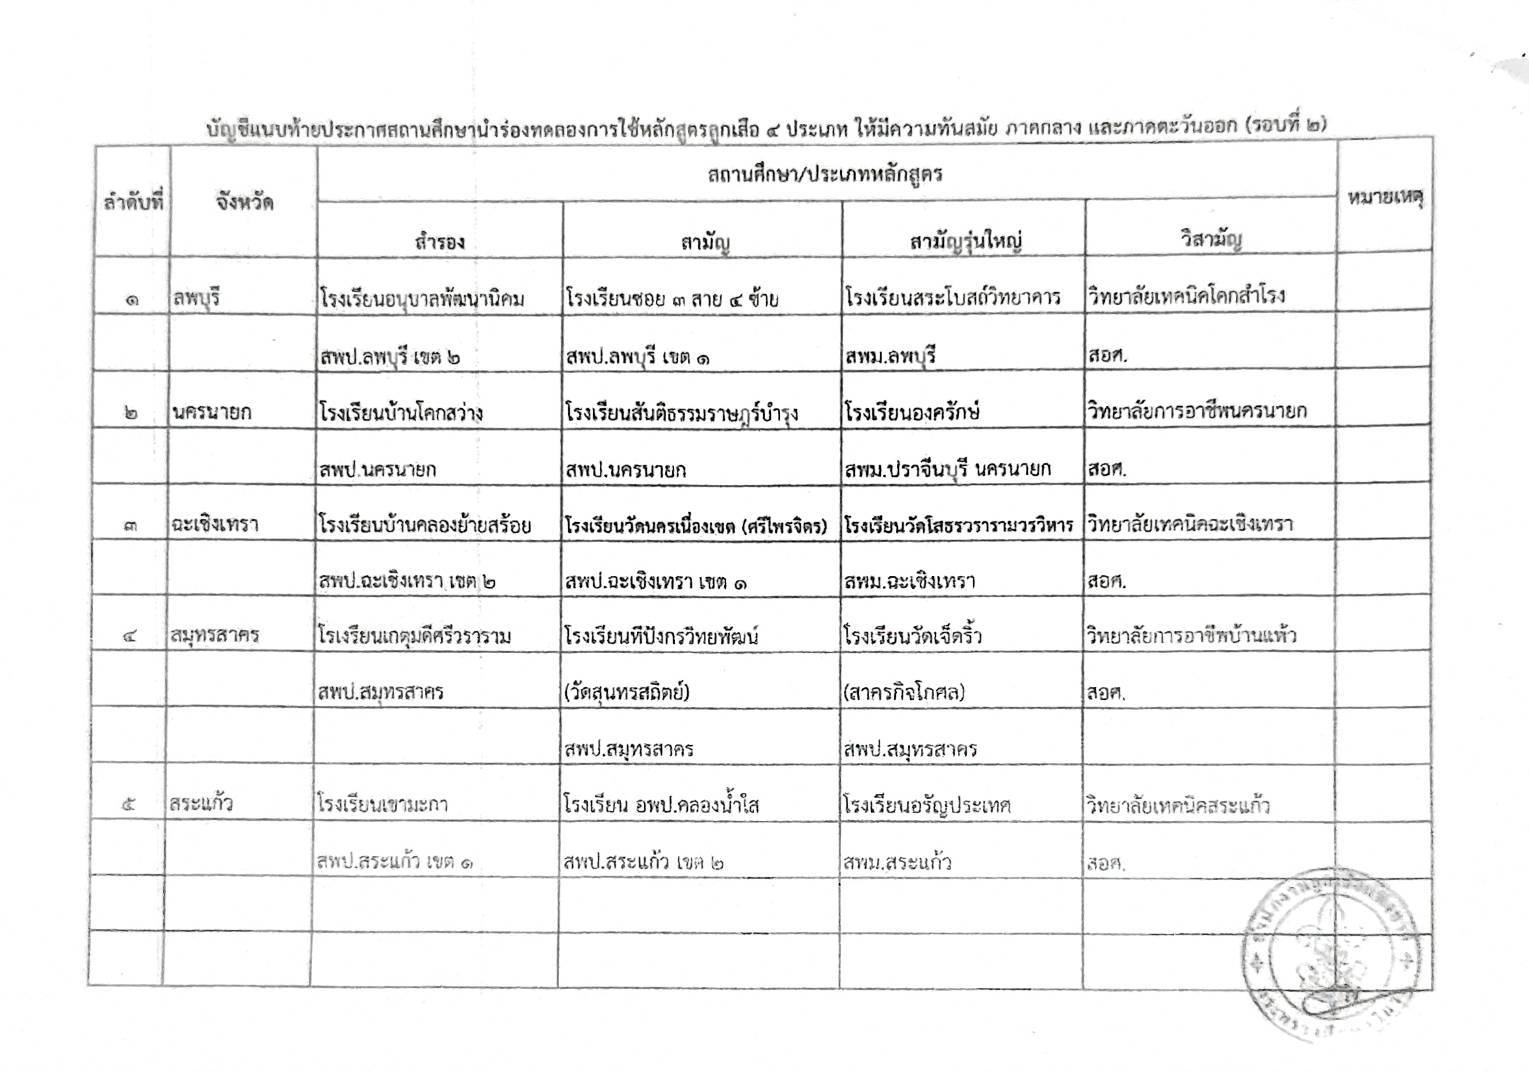 บัญชีแนบท้ายประกาศสถานศึกษานำร่องทดลองการใช้หลักสูตรลูกเสือ ๔ ประเภท ให้มีความทันสมัย ภาคกลาง และภาคตะวันออก (รอบที่ ๒)
ลำดับที่ จังหวัด สถานศึกษา/ประเภทหลักสูตร หมายเหตุ
สำรอง สามัญ สามัญรุ่นใหญ่ วิสามัญ
๑ ลพบุรี โรงเรียนอนุบาลพัฒนานิคม โรงเรียนซอย ๓ สาย ๔ ซ้าย โรงเรียนสระโบสถ์วิทยาคาร วิทยาลัยเทคนิคโคกสำโรง
สพป.ลพบุรี เขต ๒ สพป.ลพบุรี เขต ๑ สพม.ลพบุรี สอศ.
๒ นครนายก โรงเรียนบ้านโคกสว่าง โรงเรียนสันติธรรมราษฎร์บำรุง โรงเรียนองครักษ์ วิทยาลัยการอาชีพนครนายก
สพป.นครนายก สพป.นครนายก สพม.ปราจีนบุรี นครนายก สอศ.
๓ ฉะเชิงเทรา โรงเรียนบ้านคลองย้ายสร้อย โรงเรียนวัดนครเนื่องเขต (ศรีไพรจิตร) โรงเรียนวัดโสธรวรารามวรวิหาร วิทยาลัยเทคนิคฉะเชิงเทรา
สพป.ฉะเชิงเทรา เขต ๒ สพป.ฉะเชิงเทรา เขต ๑ สพม.ฉะเชิงเทรา สอศ.
๔ สมุทรสาคร โรเงรียนเกตุมดีศรีวราราม โรงเรียนทีปังกรวิทยพัฒน์ โรงเรียนวัดเจ็ดริ้ว วิทยาลัยการอาชีพบ้านแพ้ว
สพป.สมุทรสาคร (วัดสุนทรสถิตย์) (สาครกิจโกศล) สอศ.
สพป.สมุทรสาคร สพป.สมุทรสาคร
๕ สระแก้ว โรงเรียนเขามะกา โรงเรียน อพป.คลองน้ำใส โรงเรียนอรัญประเทศ วิทยาลัยเทคนิคสระแก้ว
สพป.สระแก้ว เขต ๑ สพป.สระแก้ว เขต ๒ สพม.สระแก้ว สอศ.